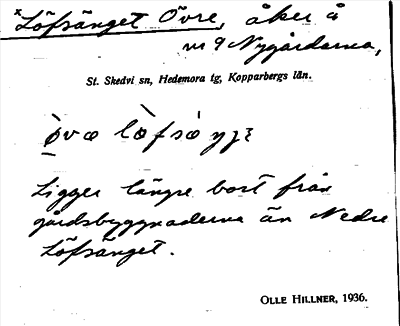 ×Löfsänget Övre, åker å
nr 9 Nygårdarna,
St. Skedvi sn, Hedemora tg, Kopparbergs län.
Ligger längre bort från
gårdsbyggnaderna än Nedre
Löfsänget.
OLLE HILLNER, 1936.